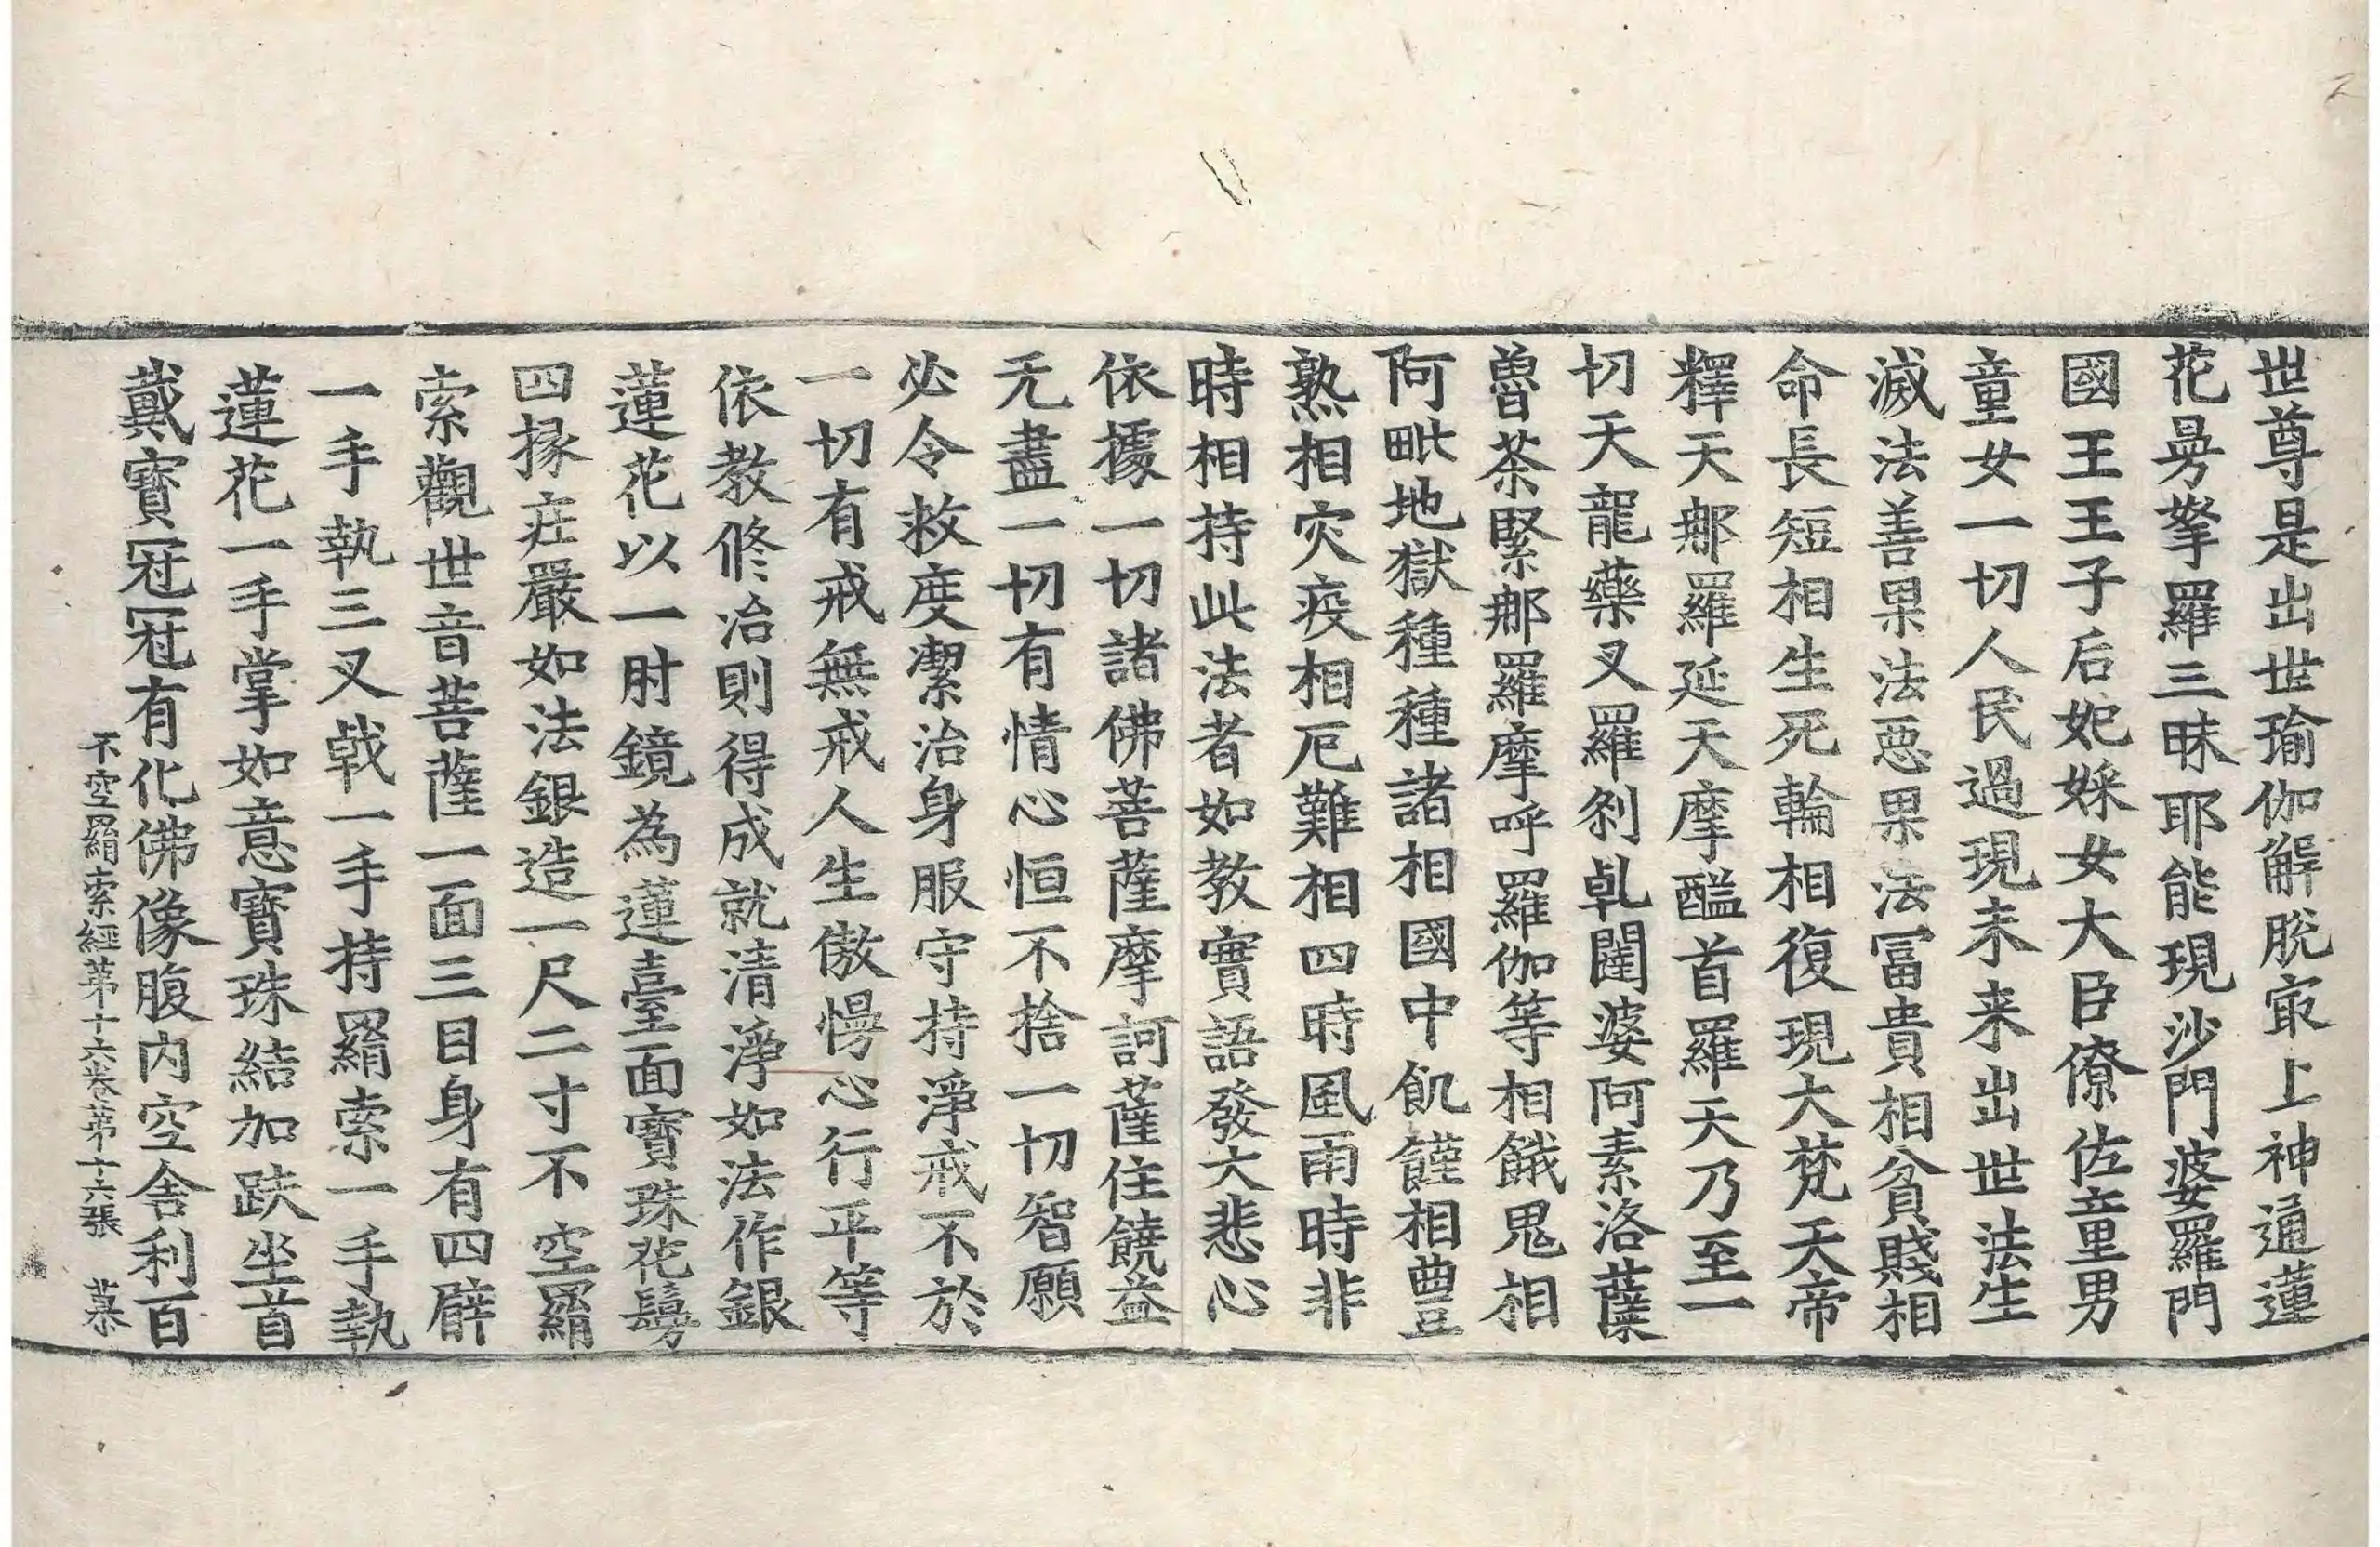 世尊是出世瑜伽解脫冣上神通蓮
花曼拏羅三昧耶能現沙門婆羅門
國王王子后妃婇女大臣僚佐童男
童女一切人民過現未来出世法生
滅法善果法惡果法冨貴相貧賤相
命長短相生死輪相復現大梵天帝
釋天那羅延天摩醯首羅天乃至一
切天龍藥叉羅剎乹闥婆阿素洛蘗
魯茶緊那羅摩呼羅伽等相餓鬼相
阿毗地獄種種諸相國中飢饉相豊
熟相灾疫相厄難相四時風雨時非
時相持此法者如教實語發大悲心
依據一切諸佛菩薩摩訶薩住饒益
无盡一切有情心恒不捨一切智願
必令救度潔治身服守持淨戒不於
一切有戒無戒人生傲慢心行平等
依教修治則得成就清淨如法作銀
蓮花以一肘鏡為蓮臺面寶珠花鬘
四掾莊嚴如法銀造一尺二寸不空羂
索觀世音菩薩一面三目身有四臂
一手執三叉戟一手持羂索一手執
蓮花一手掌如意寶珠結加趺坐首
戴寶冠冠有化佛像腹内空舍利百
不空羂索經第十六卷第十六張 慕